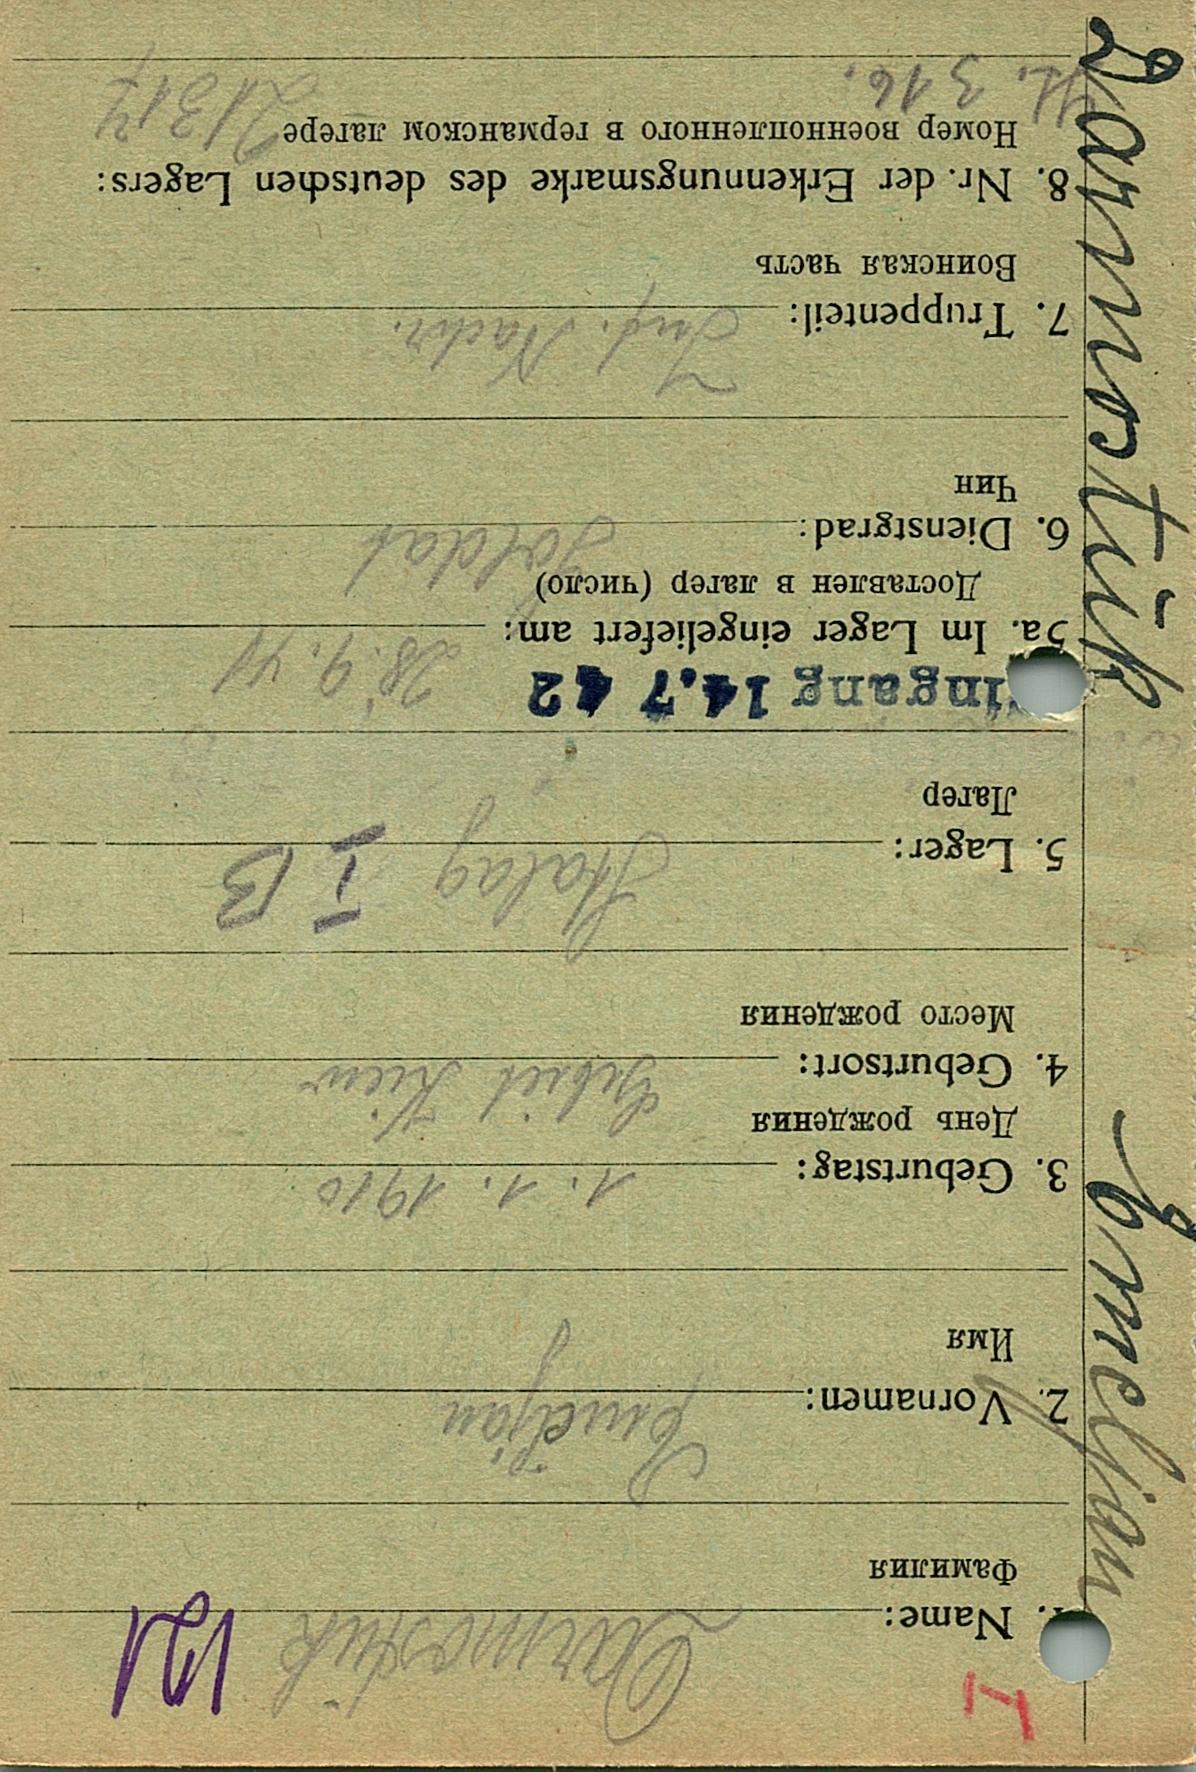 Darmostük Emeljan
4
121
1. Name: Darmostük
Фамилия
2. Vornamen: Emeljan
Имя
3. Geburtstag: 1. 1. 1910
День рождения
4. Geburtsort: Gebiet Kiew
Место рождения
5. Lager: Stalag I B
Лагер
ingang 14.7 42
5a. Im Lager eingeliefert am: 28.9.41
Доставлен в лагер (число)
6. Dienstgrad: Soldat
Чин
7. Truppenteil: Inf. Nachr.
Воинская часть
8. Nr. der Erkennungsmarke des deutschen Lagers:
Номер военнопленного в германском лагере 21317
316.